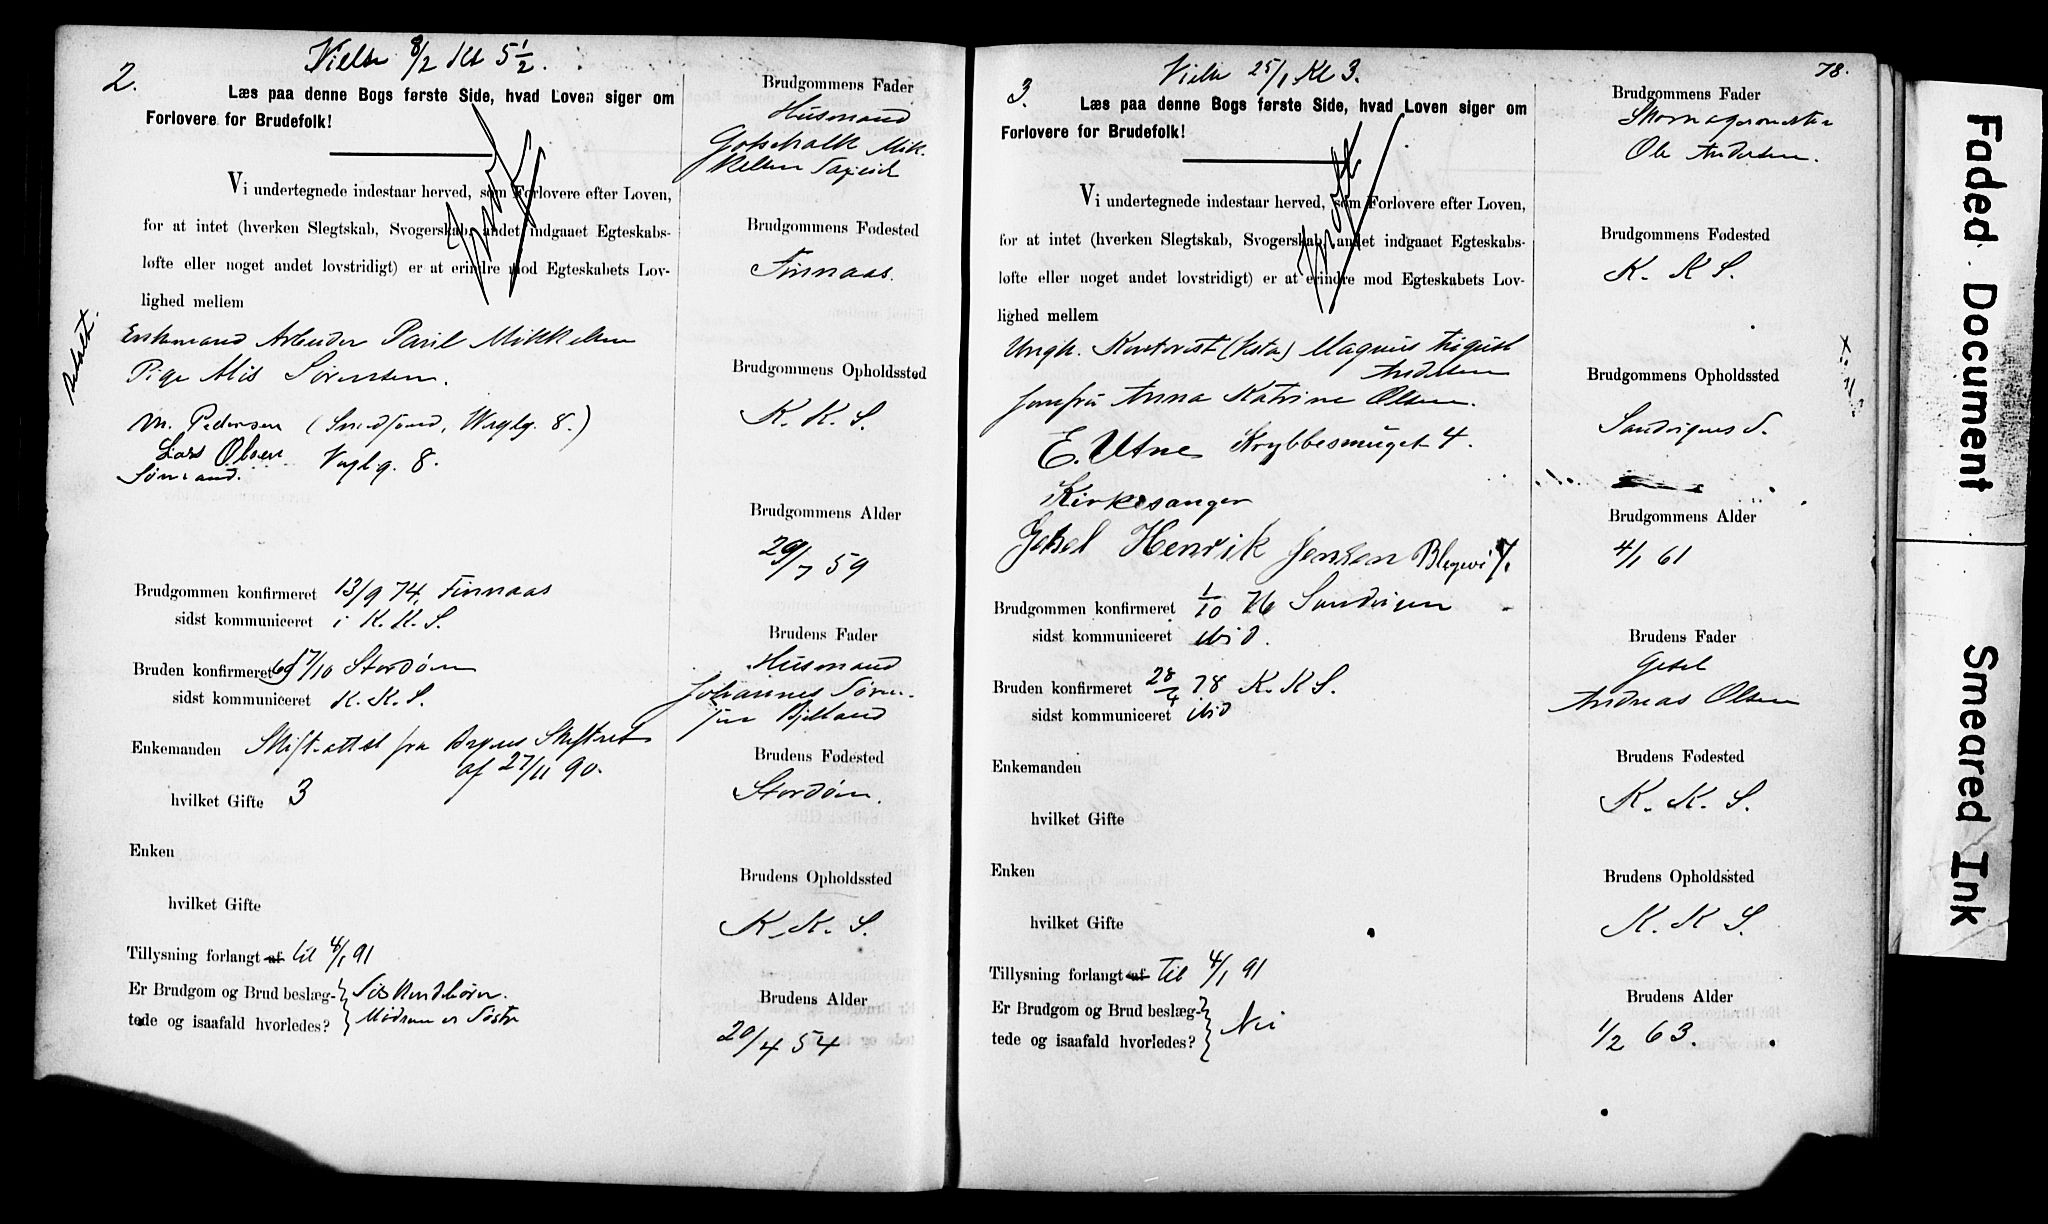 2.
Vielse 8/2 Kl 5 1/2.
Læs paa denne Bogs første Side, hvad Loven siger om
Forlovere for Brudefolk!
Vi undertegnede indestaar herved, som Forlovere efter Loven,
for at intet (hverken Slegtskab, Svogerskab, andet indgaaet Egteskabs-
løfte eller noget andet lovstridigt) er at erindre mod Egteskabets Lov-
lighed mellem
Enkemand Arbeider Paul Mikkelsen
Pige Sørensen.
M. Pedersen ( 8.)
Lars Olsen 8.
Brudgommen konfirmeret 13/9 74, Finnaas
sidst kommuniceret i K. K. S.
Bruden konfirmeret 17/10 69 Stordøen
sidst kommuniceret K. K. S.
Enkemanden Skifteattest fra Bergens Skifteret
af 27/11 90.
hvilket Gifte 3
Enken
hvilket Gifte
Tillysning forlangt af til 4/1 91
Er Brudgom og Brud beslæg- Søskendebørn.
tede og isaafald hvorledes? Mødrene er Søstre
Brudgommens Fader
Husmand
Gotschalk Mik-
kelsen
Brudgommens Fødested
Finnaas.
Brudgommens Opholdssted
K. K. S.
Brudgommens Alder
29/7 59
Brudens Fader
Husmand
Johannes Søren-
sen Bjelland
Brudens Fødested
Stordøen.
Brudens Opholdssted
K. K. S.
Brudens Alder
20/4 54
3.
Vielse 25/1 Kl 3.
78.
Læs paa denne Bogs første Side, hvad Loven siger om
Forlovere for Brudefolk!
Vi undertegnede indestaar herved, som Forlovere efter Loven,
for at intet (hverken Slegtskab, Svogerskab, andet indgaaet Egteskabs-
løfte eller noget andet lovstridigt) er at erindre mod Egteskabets Lov-
lighed mellem
Ungk. Kontorist Magnus August
Andersen
Jomfru Anna Katrine Olsen.
E. Utne Krybbesmuget 4.
Kirkesanger
Gesel Henrik Jensen
Brudgommen konfirmeret 1/10 76 Sandvigen
sidst kommuniceret ibid.
Bruden konfirmeret 28/4 78 K. K S.
sidst kommuniceret ibid
Enkemanden
hvilket Gifte
Enken
hvilket Gifte
Tillysning forlangt af til 4/1 91
Er Brudgom og Brud beslæg- Nei
tede og isaafald hvorledes?
Brudgommens Fader
Skomagermester
Ole Andersen.
Brudgommens Fødested
K. K S.
Brudgommens Opholdssted
Sandvigens S.
Brudgommens Alder
4/1 61
Brudens Fader
Gesel
Andreas Olsen
Brudens Fødested
K. K. S.
Brudens Opholdssted
K. K S.
Brudens Alder
1/2 63.
Faded Document
Smeared Ink